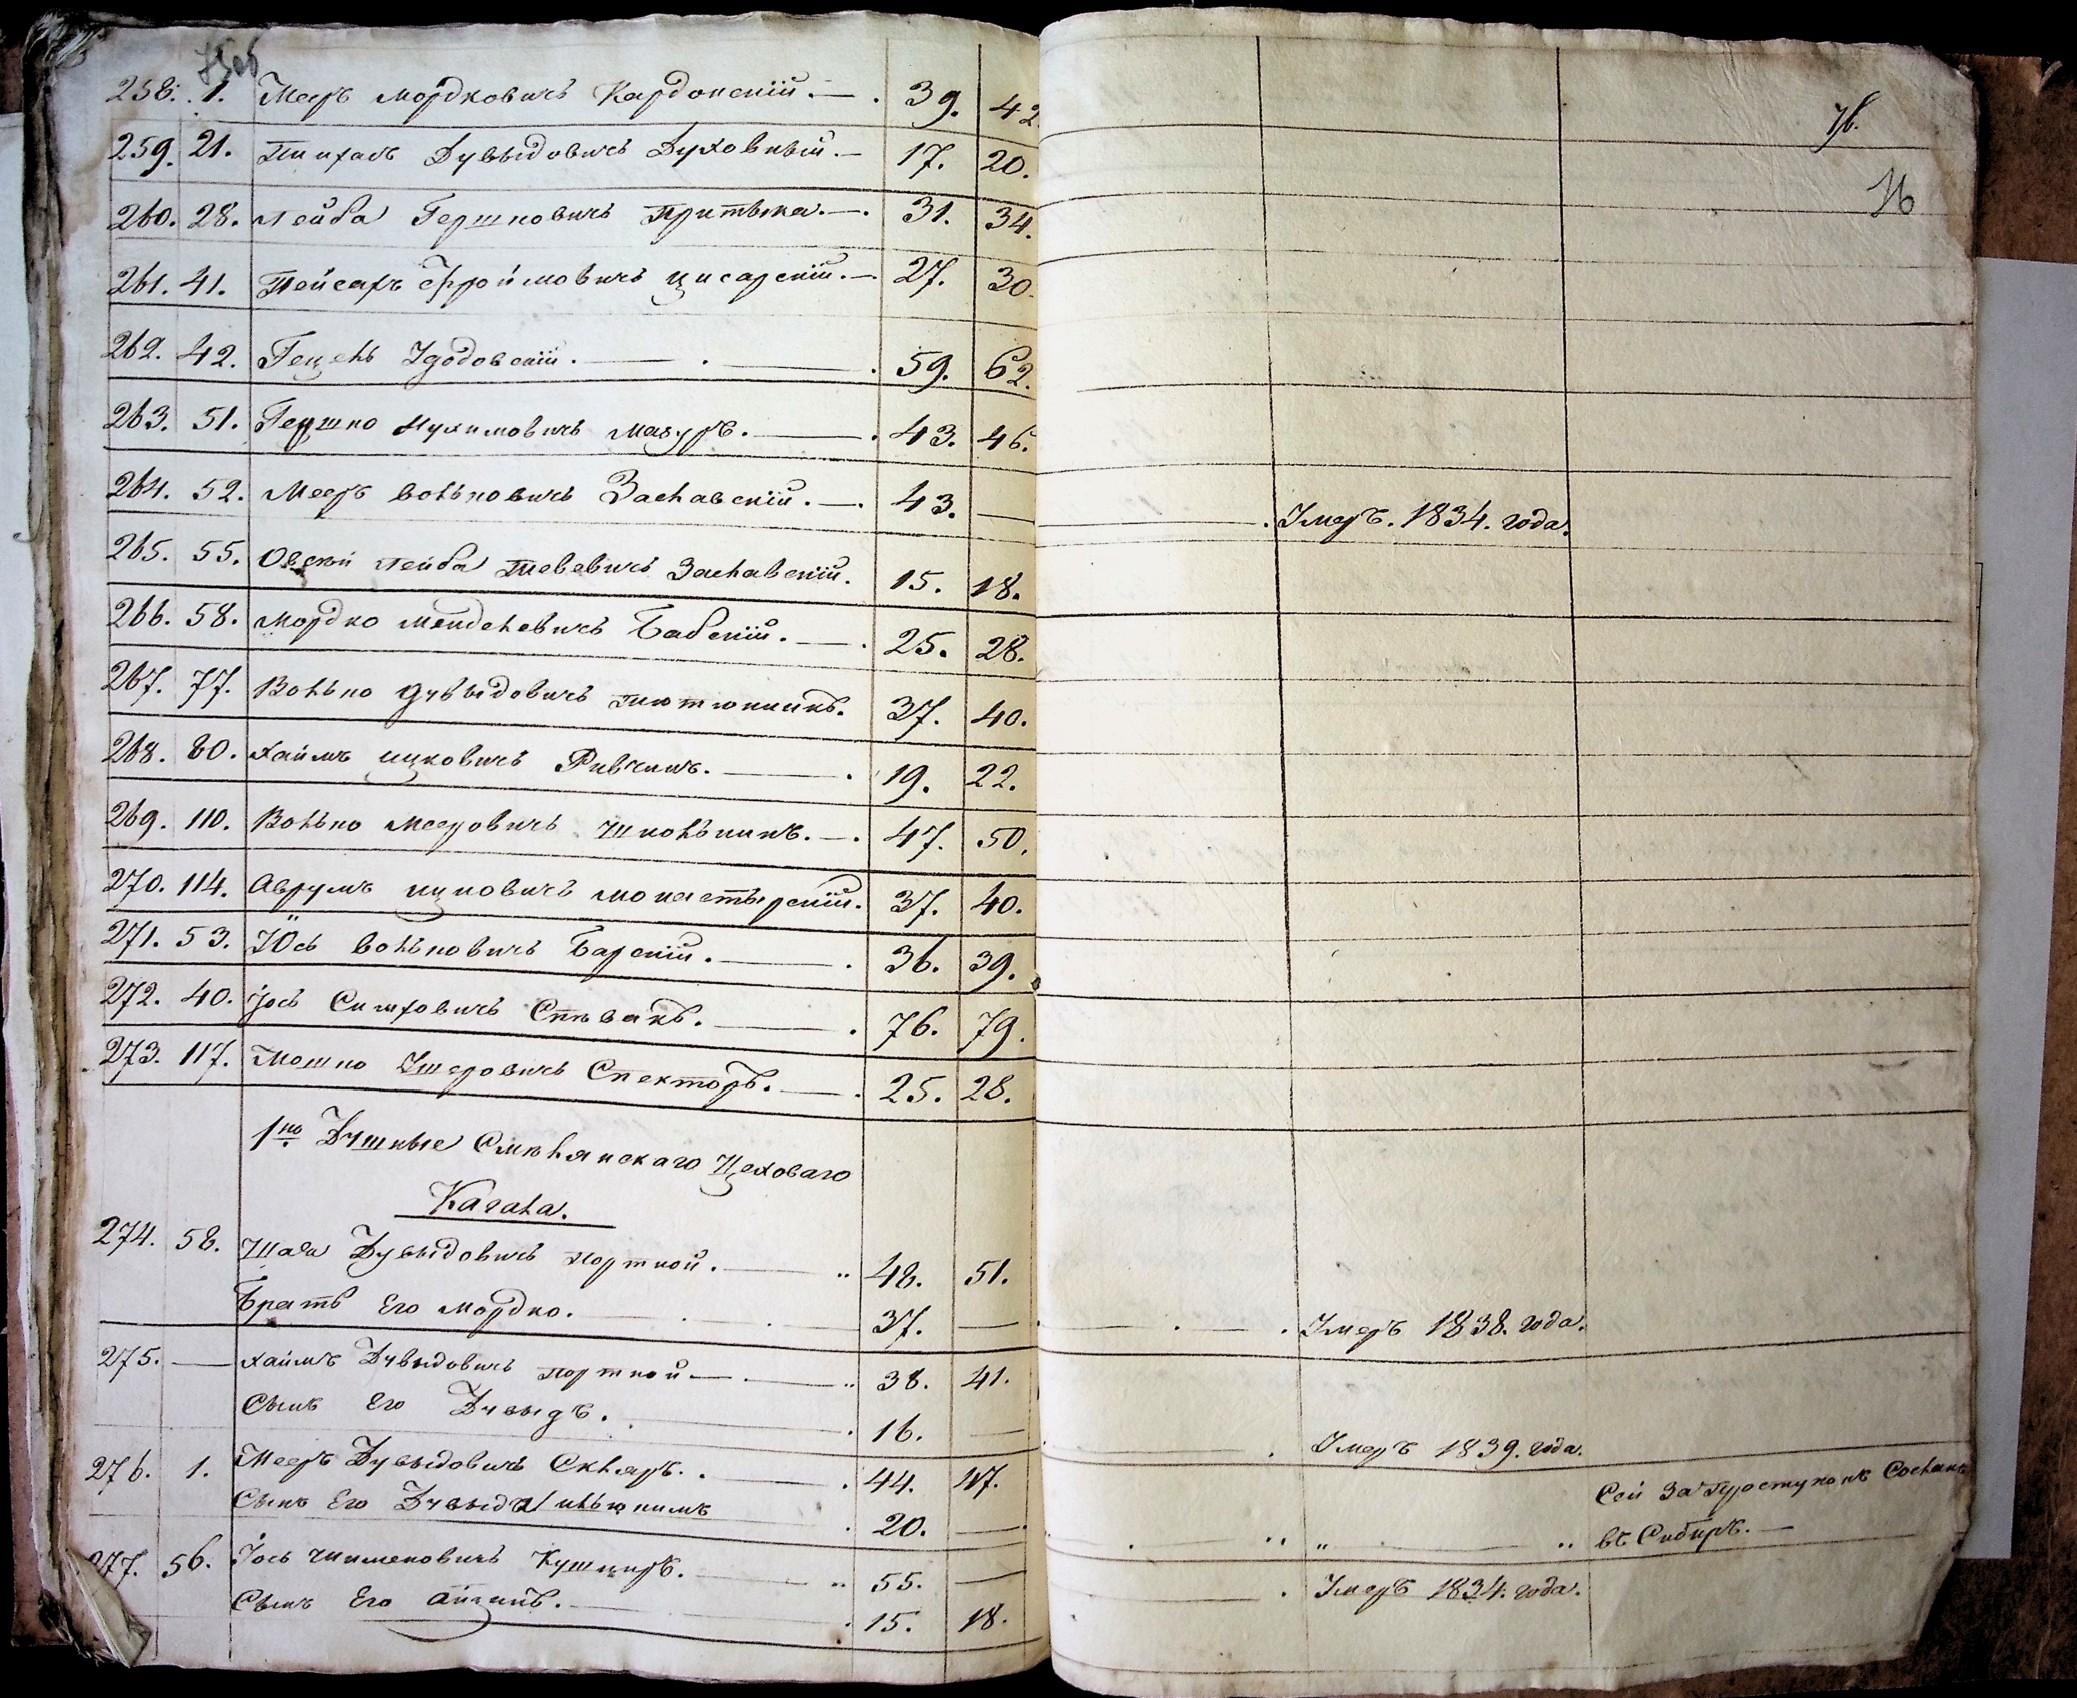 75 об
76.
76
258. 1. Мееръ Мордковичъ Кардонскій. — . 39. 42.
259. 21. Пинхасъ Дувыдовичъ Духовный. — 17. 20.
260. 28. Лейба Гершковичъ Притыка. — . 31. 34.
261. 41. Пейсахъ Фроймовичъ Цисарскій. — 27. 30.
262. 42. Гецель Удодовскій. — . — . 59. 62.
263. 51. Гершко Нухимовичъ Мазуръ. — . 43. 46.
264. 52. Мееръ Вольковичъ Заславскій. — . 43. — — . Умеръ. 1834. года.
265. 55. Лейба Тевевичъ Заславскій. 15. 18.
266. 58. Мордко Менделевичъ Бабскій. — . 25. 28.
267. 77. Волько Дувыдовичъ Тютюнникъ. 37. 40.
268. 80. Хаимъ Ицковичъ Ривчинъ. — . 19. 22.
269. 110. Волько Мееровичъ Школьникъ. — . 47. 50.
270. 114. Аврумъ Ицковичъ Монастырскій. 37. 40.
271. 53. Юсь Вольковичъ Барскій. — . 36. 39.
272. 40. Іось Симховичъ Спѣвакъ. — . 76. 79.
273. 117. Мошко Ушеровичъ Спекторъ. — . 25. 28.
1но Душные Смѣлянскаго Цеховаго
Кагала.
274. 58. Шая Дувыдовичъ Портной. — „ 48. 51.
Братъ Его Мордко. . . 37. — . — . — . Умеръ 1838. года.
275. — Хаимъ Дувыдовичъ Портной — . — „ 38. 41.
Сынъ Его Дувыдъ. — . 16. — . — . Умеръ 1839. года.
276. 1. Мееръ Дувыдовичъ Скляръ. . . 44. 47.
Сей за проступокъ Сосланъ
Сынъ Его Дувыдъ . 20. — . . — „ „ — „ въ Сибирь. —
277. 56. Іось Шименовичъ Кушниръ. — „ 55. — — . Умеръ 1834. года.
Сынъ Его Айзикъ. — . 15. 18.